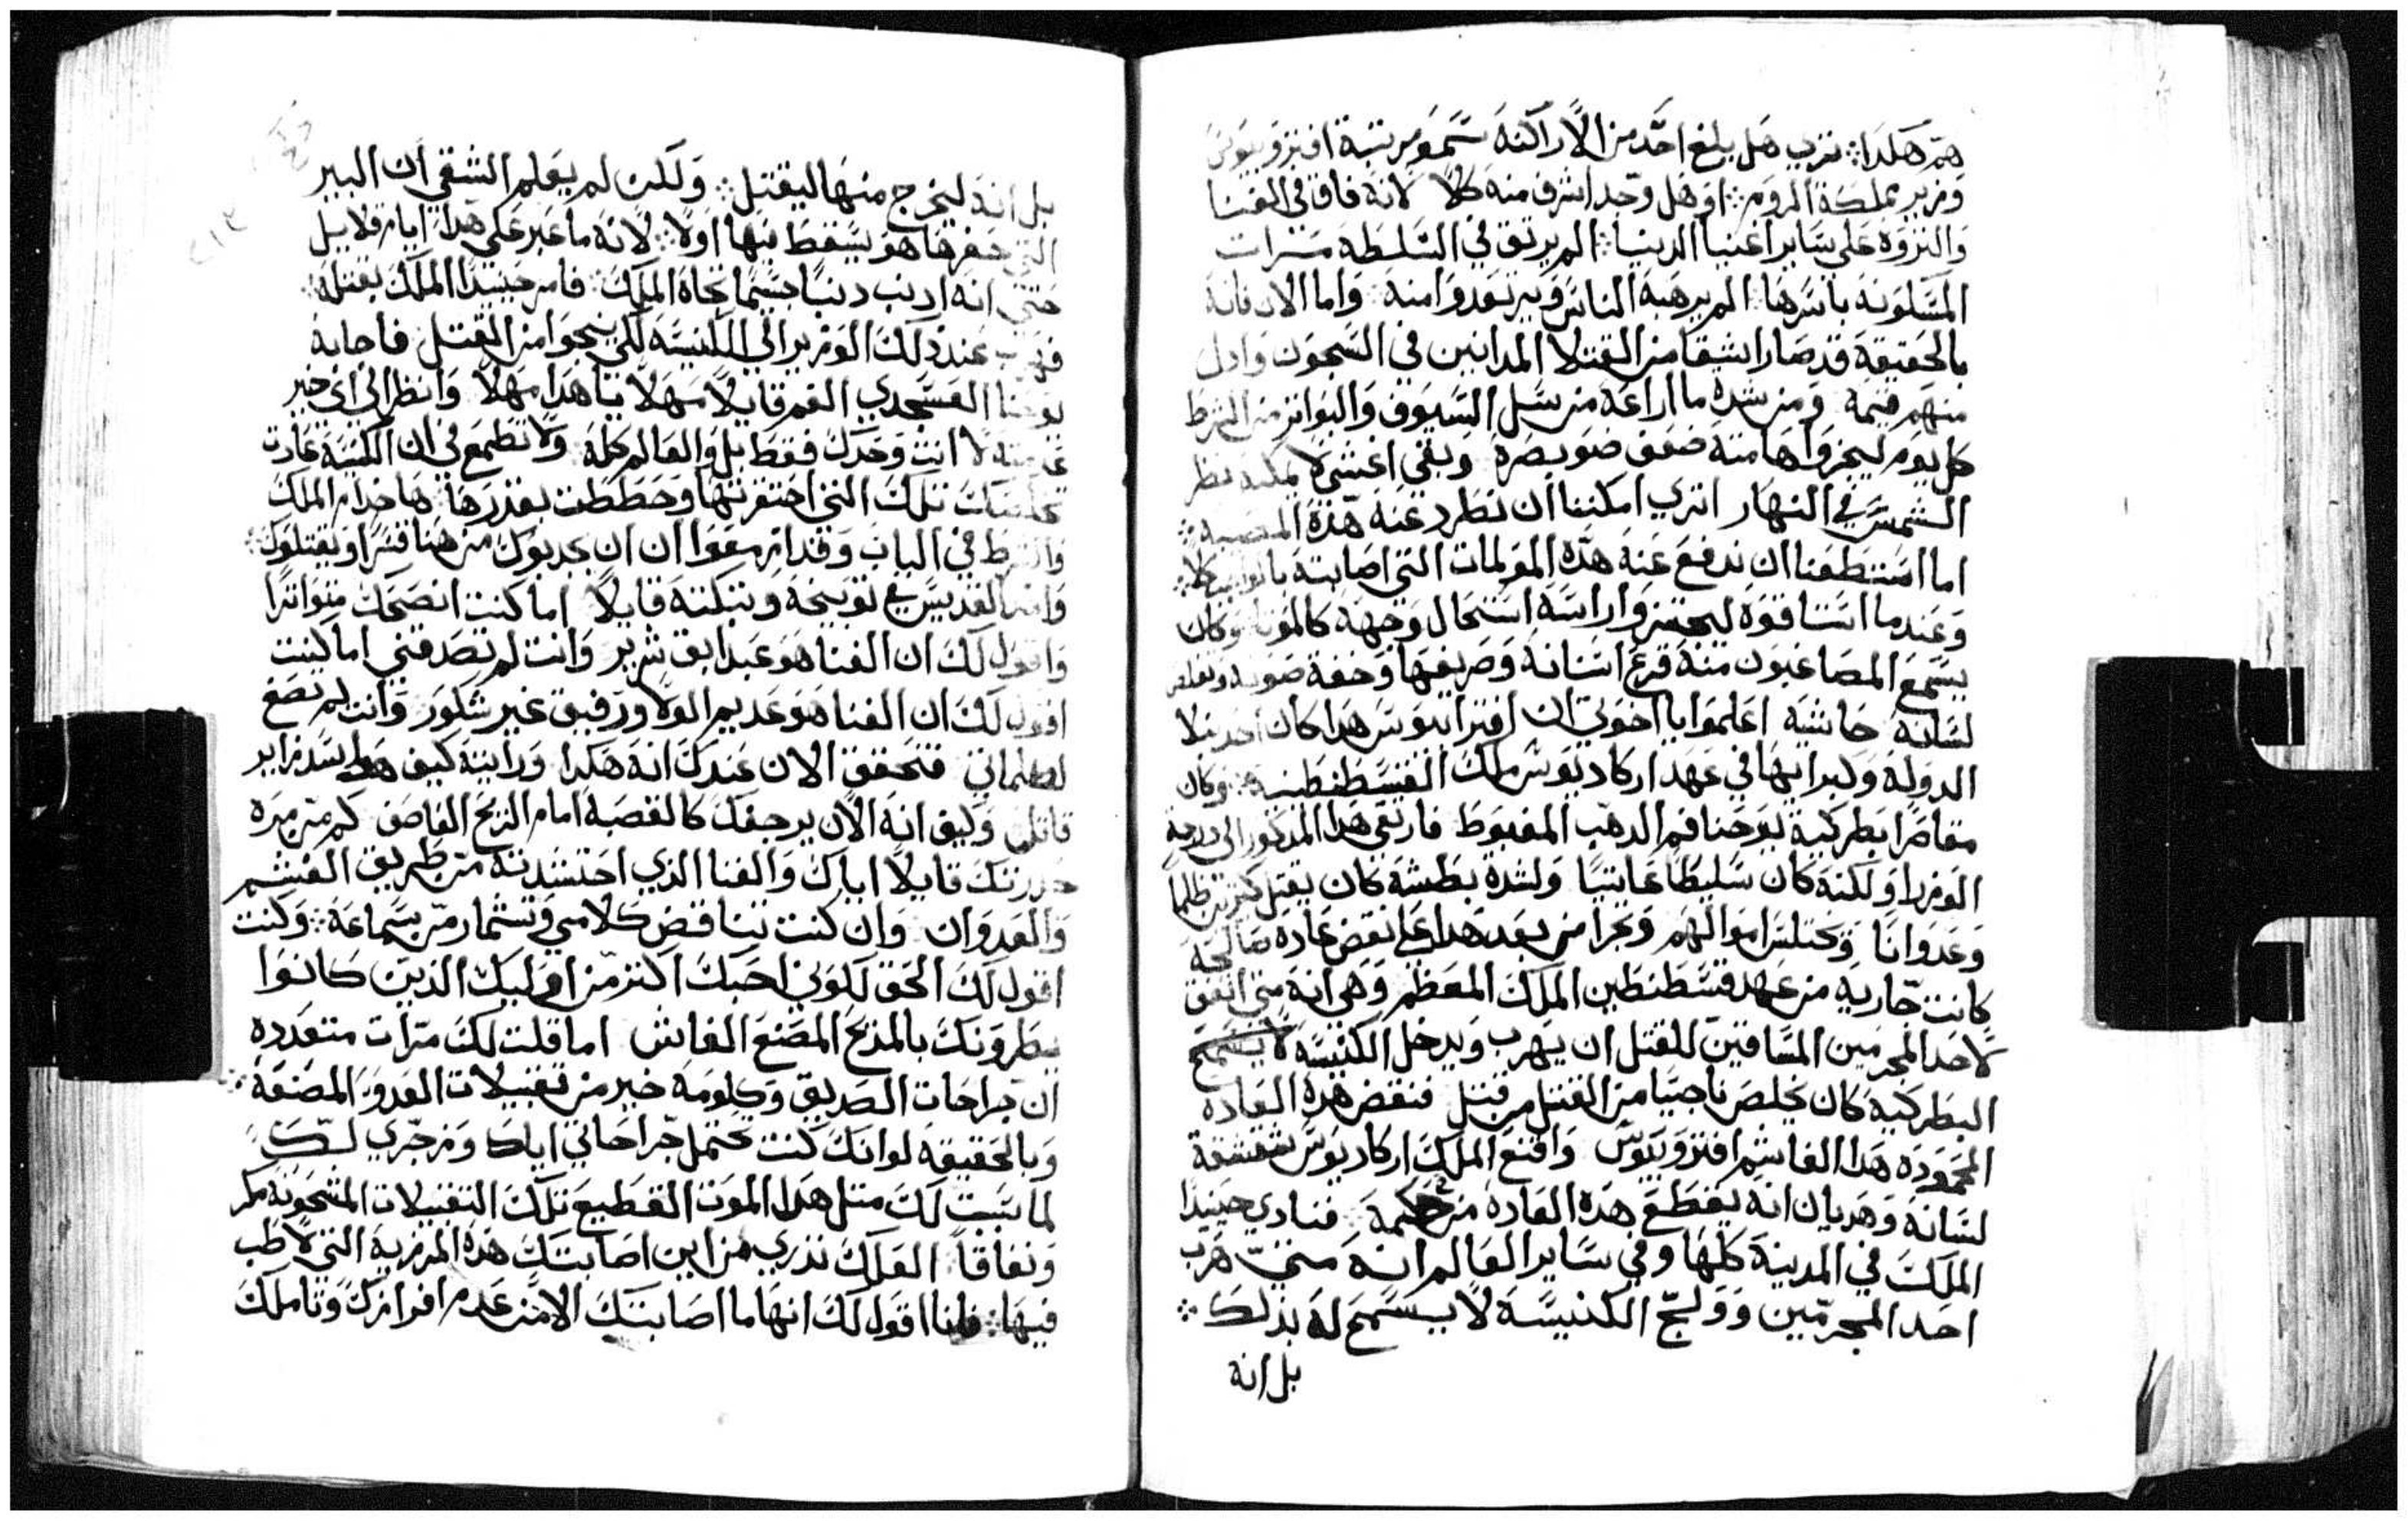 هم هكدا؞ ترى هل بلغ احد من الاراكنة سمو مرتبة افتروبيوس
وزير مملكة الروم؞ او هل وجد اشرف منه كلا لانه فاق في الغنا
والتروة على ساير اغنيا الدنيا؞ الم يرتق في السلطة مترات
المسكونة باسرها الم يرهبه الناس ويرتعدوا منه واما الان فانه
بالحقيقة قد صار اشقا من القتلا المدانين في السجون وادل
منهم قيمة ومن شدة ما اراعه من سل السيوف والبواتر من الشرط
كل يوم ليجزوا هامته ضعف ضو بصره وبقي اعشى لا يمكنه نظر
الشمس في النهار اترى امكننا ان نطرد عنه هذه المصيبة؞
اما استطعنا ان ندفع عنه هذه المولمات التي اصابته بالواجب كلا؞
وعندما اتتا قوة ليحتزوا راسه استحال وجهه كالموتا وكان
يسمع المصاغبون منه قرع اسنانه وصريفها وخفة صوته وتقلص
لسانه حاشيه اعلموا يا اخوتي ان افتراتيوس هدا كان احد نبلا
الدولة وكبرائها في عهد اركاديوس ملك القسطنطنية؞ وكان
مقاصرا بطركية يوحنا فم الدهب المغبوط فارتقى هدا المدكور الى درجة
الوزرا ولكنه كان سليطا عاتيا ولشدة بطشه كان يقتل كثيرين ظلما
وعدوانا ويختلس اموالهم وتجرا من بعد هدا على نقض عادة صالحة
كانت جارية من عهد قسطنطين الملك المعظم وهي انه متى اتفق
لاحد المجرمين المساقين للقتل ان يهرب ويدخل الكنيسه لا يسمح
البطركية كان يخلص ناجيا من القتل من قتل فنقض هده العادة
المحمودة هدا الغاشم افتروبيوس واقنع الملك اركاديوس بشقشقة
لسانه وهديان انه يقطع هده العادة من حكمه فنادى حينيدا
الملك في المدينة كلها وفي ساير العالم انه متى هرب
احد المجرمين وولج الكنيسة لا يسمح له بذلك؞
بل انه
بل انه ليخرج منها ليقتل؞ ولكن لم يعلم الشقي ان البير
التي حفرها هو يسقط فيها اولا؞ لانه ما عبر على هدا ايام قلايل
حتى انه ادنب دنبا جسيما تجاه الملك فامر حينيدا الملك بقتله؞
فهرب عند دلك الوزير الى الكنيسه لكي ينجوا من القتل فاجابه
يوحنا العسجدي الفم قايلا مهلا يا هدا مهلا وانظر الى اي خير
عدمته لا انت وحدك فقط بل والعالم كله ولا تطمع في ان الكنيسة عادت
تخلصك تلك التي احتقرتها وحططت بقدرها ها خدام الملك
والشرط في الباب وقد ازمعوا ان ان يجدبوك من هنا قسرا ويقتلوك؞
وانثنى القديس في توبيخه وتبكته قايلا اما كنت انصحك متواترا
واقول لك ان الغنا هو عبد ابق شرير وانت لم تصدقني اما كنت
اقول لك ان الغنا هو عديم الولا ورفيق غير شكور وانت لم تصغ
لكلماتي فتحقق الان عندك انه هكدا ورايته كيف هو ليسد زاير
قاتل وكيف انه الان يرجفك كالقصبة امام الريح العاصف كم من مرة
حدرتك قايلا اياك والغنا الذي احتشدته من طريق الغشم
والعدوان وان كنت تناقض كلامي وتشمار من سماعه؞ وكنت
اقول لك الحق لكوني احبك اكتر من اوليك الذين كانوا
يطرونك بالمدح المصنع الغاش اما قلت لك مرات متعددة
ان جراحات الصديق وكلومه خير من تقبيلات العدو المصنعة؞
وبالحقيقة لو انك كنت تحتمل جراحاتي اياك وزجري لك
لما سببت لك متل هدا الموت الفظيع تلك التقبيلات المشحونة مكر
ونفاقا العلك تدري من اين اصابتك هده الرزية التي لا طب
فيها؞ فانا اقول لك انها ما اصابتك الا من عدم افرازك وتاملك